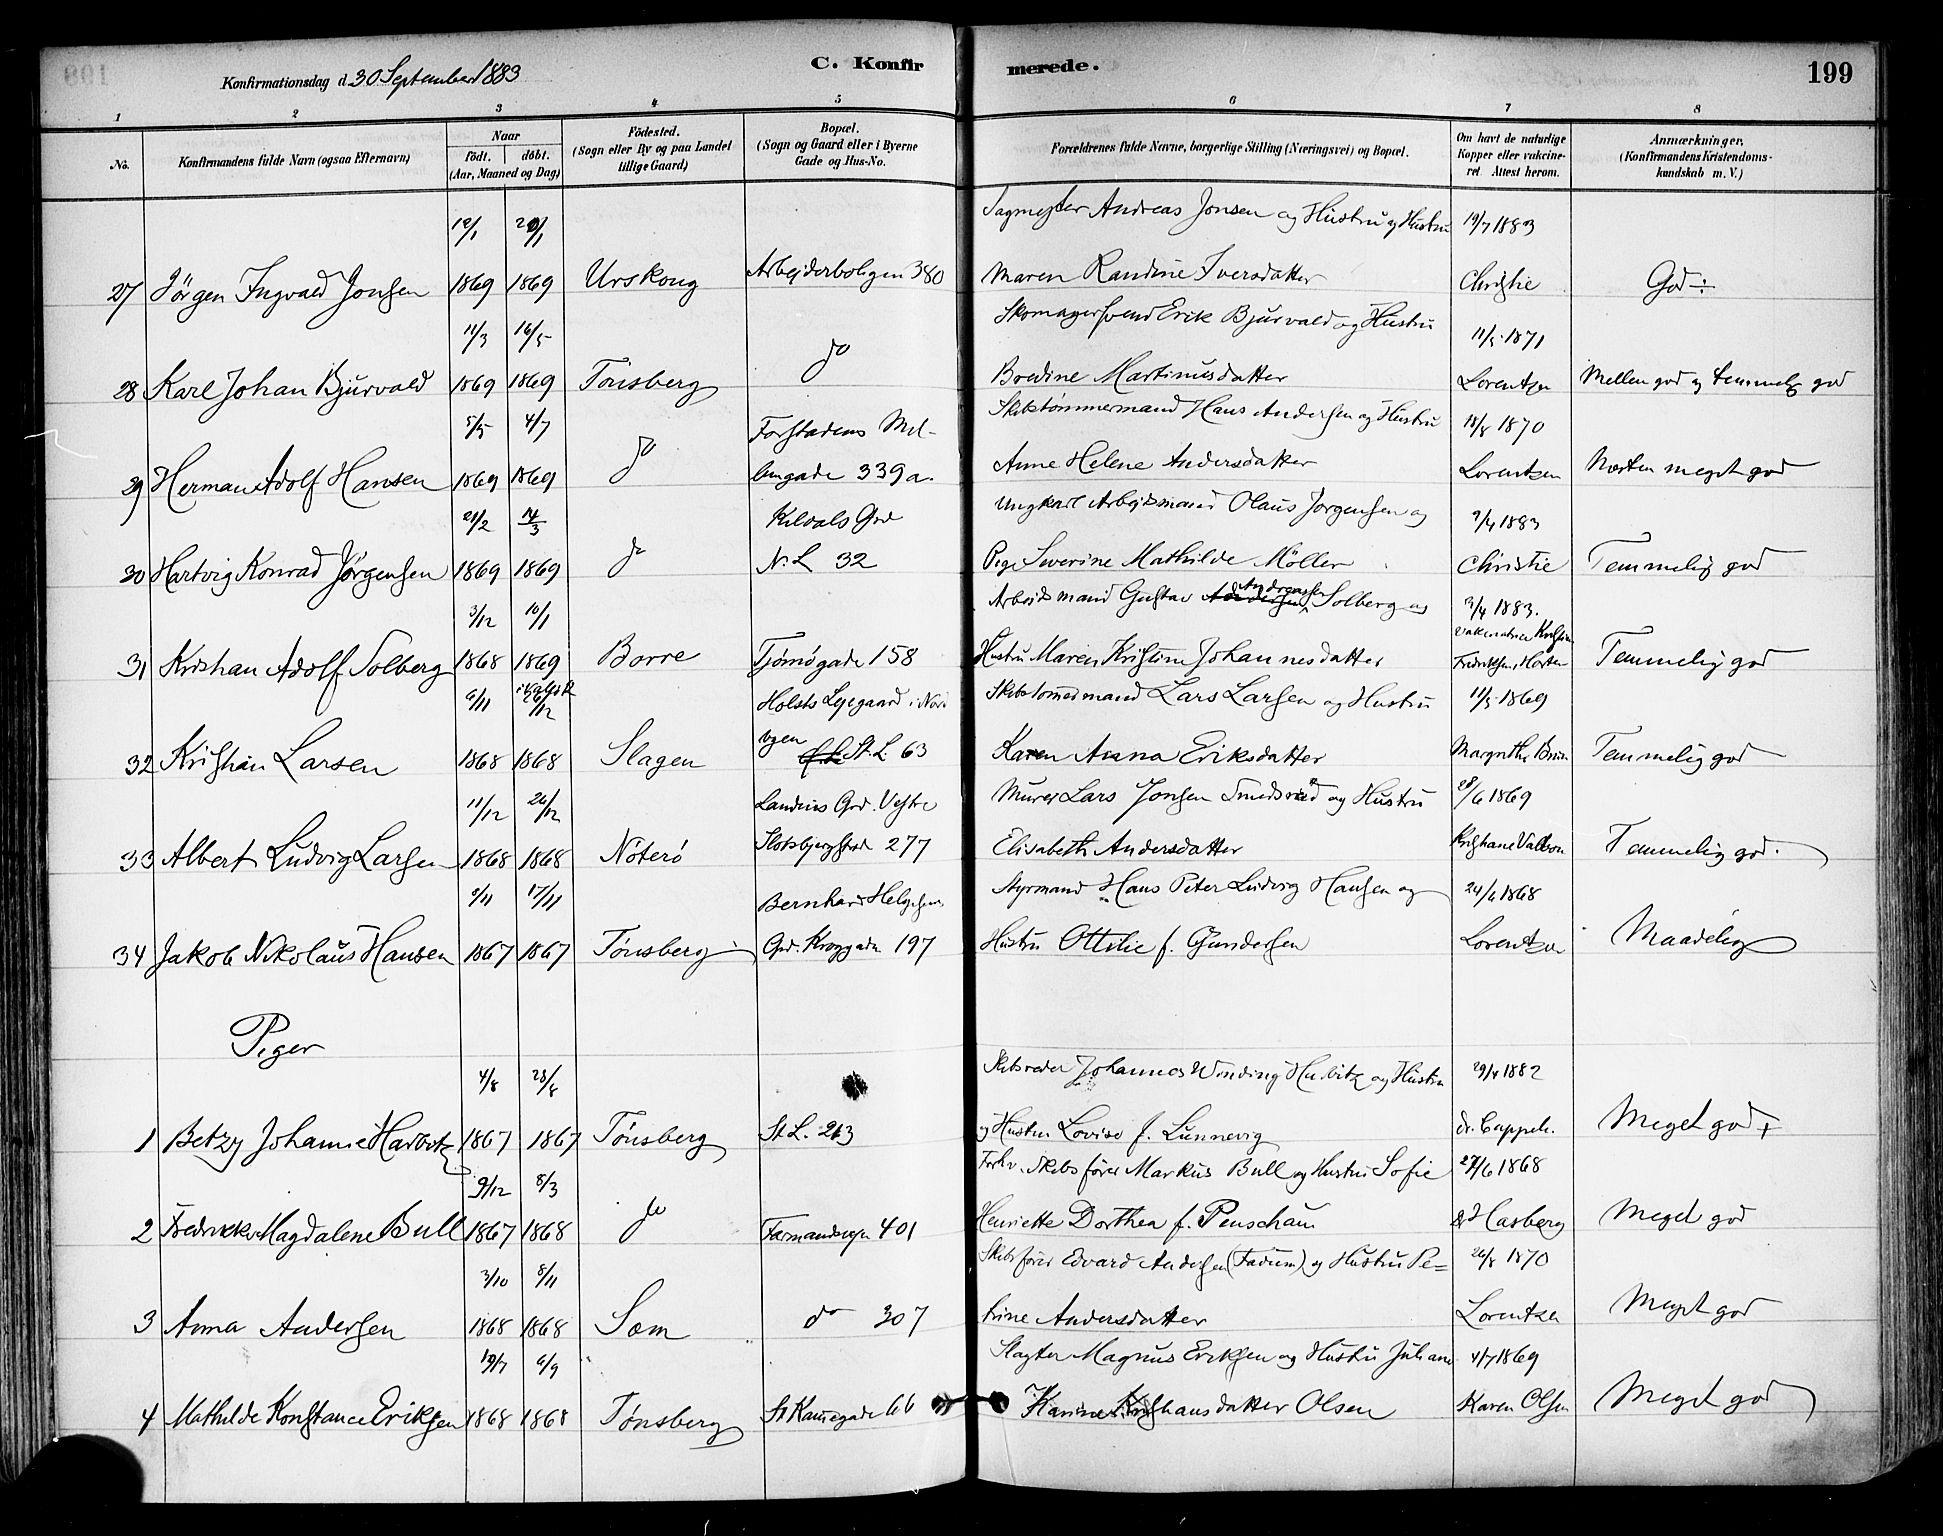 199
Konfirmationsdag d. 30 September 1883
C. Konfirmerede.
1 2 3 4 5 6 7 8
No. Konfirmandens fulde Navn (ogsaa Efternavn) Naar født. døbt. (Aar, Maaned og Dag) Fødested. (Sogn eller By og paa Landet tillige Gaard) Bopæl. (Sogn og Gaard eller i Byerne Gade og Hus-No.) Forældrenes fulde Navne, borgerlige Stilling (Næringsvei) og Bopæl. Om havt de naturlige Kopper eller vakcineret. Attest herom. Anmærkninger, (Konfirmandens Kristendomskundskab m. V.)
12/1 20/1 Andreas Jonsen og Hustru og Hustru 19/7 1883
27 Jörgen Ingvald Jonsen 1869 1869 Urskoug Arbejderboligen 380 Maren Randine Iversdatter Christie God ÷
11/3 16/5 Skomagersvend Erik Bjurvald og Hustru 11/5 1871
28 Karl Johan Bjurvald 1869 1869 Tönsberg do Bredine Martinusdatter Lorentzen Mellem god og temmelig god
5/5 4/7 Forstadens Møl- Skibstømmermand Hans Andersen og Hustru 18/8 1870
29 Herman Adolf Hansen 1869 1869 do 339a. Anne Helene Andersdatter Lorentzen Næsten meget god
21/2 14/3 Kildals Grd Ungkarl Arbejdsmand Olaus Jørgensen og 2/4 1883
30 Hartvig Konrad Jørgensen 1869 1869 do N. L 32 Pige Severine Mathilde Möller Christie Temmelig god
3/12 10/1 Arbejdsmand Gustav Andreassen Solberg og 2/4 1883.
31 Kristian Adolf Solberg 1868 1869 Borre Tjømøgade 158 Hustru Maren Kristine Johannesdatter Fredriksen, Horten Temmelig god
6/11 26/12 Holsts Lejegaard i Nord Skibstömmermand Lars Larsen og Hustru 11/5 1869
32 Kristian Larsen 1868 1868 Slagen byen St. L. 63 Karen Anna Eriksdatter Margrethe Bruun Temmelig god
11/12 26/12 Grd. Vestre Murer Lars Jonsen Smedsrød og Hustru 28/6 1869
33 Albert Ludvig Larsen 1868 1868 Nöterö 277 Elisabeth Andersdatter Temmelig god.
9/11 17/11 Bernhard Helgesens Styrmand Hans Peter Ludvig Hansen og 24/6 1868
34 Jakob Nikolaus Hansen 1867 1867 Tönsberg Grd. Kroggaden 197 Hustru Ottilie f. Gundersen Lorentzen Maadelig
Piger
4/8 28/8 Skibsreder Johannes Winding Harbitz og Hustru 29/4 1882
1 Betzy Johanne Harbitz 1867 1867 Tönsberg St. L. 263 og Hustru Lovise f. Linnevig dr. Cappel. Meget god +
9/12 8/3 Forhv. Skibsfører Markus Bull og Hustru Sofie 27/6 1868
2 Fredrikke Magdalene Bull 1867 1868 do Farmandsvejen 401 Henriette Dorthea f. Penschau dr Hasberg Meget god
3/10 8/11 Skibsfører Edvard Andersen (Fadum) og Hustru Pe= 26/8 1870
3 Anna Andersen 1868 1868 Sæm do 307 trine Andersdatter Lorentzen Meget god
6/9 Slagter Magnus Eriksen og Hustru Juliane 4/7 1869
4 Mathilde Konstance Eriksen 1868 1868 Tönsberg 66 Karine Kristiansdatter Olsen Karen Olsen Meget god